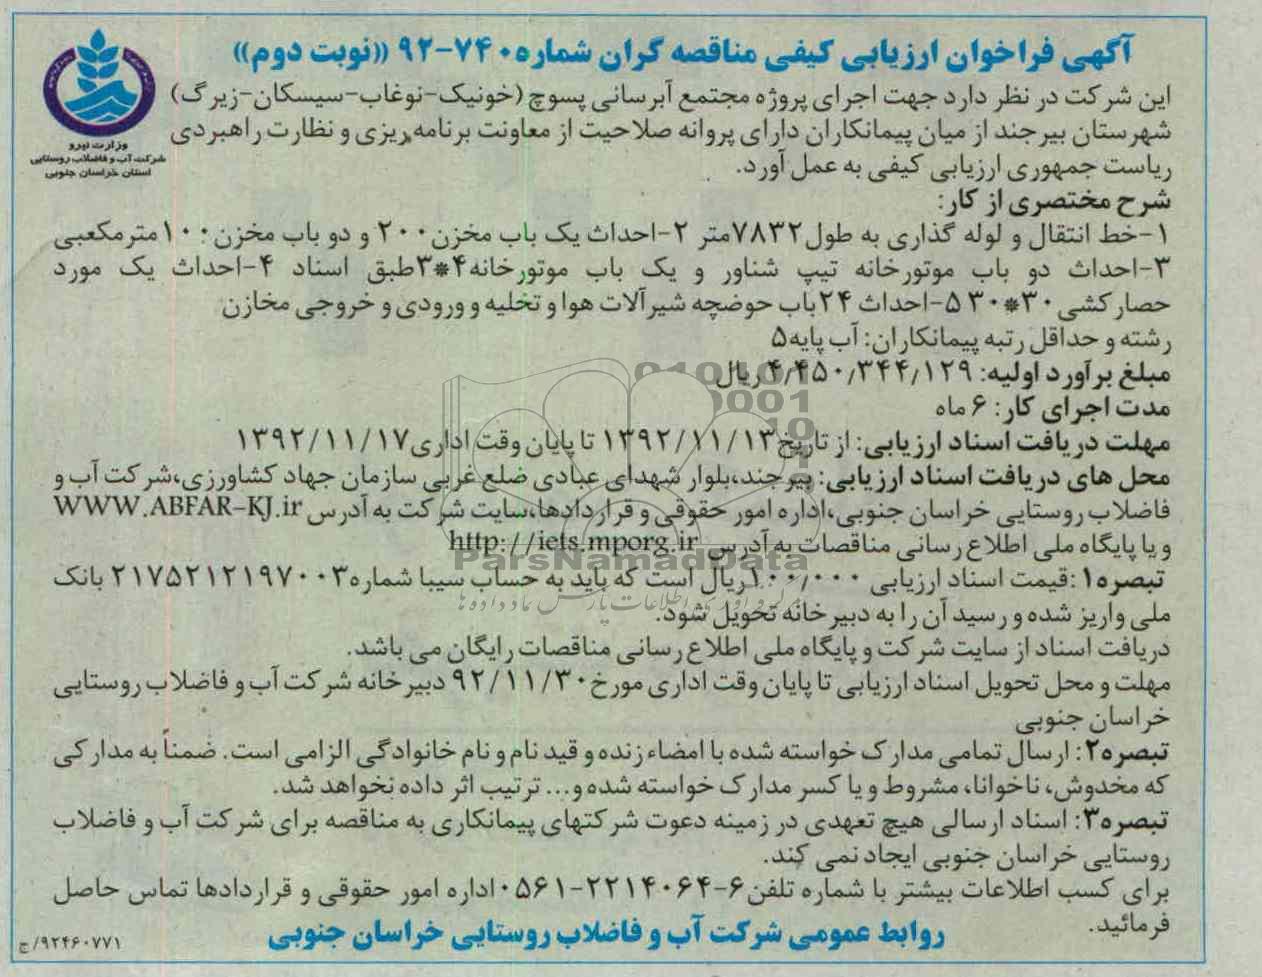 آگهی فراخوان ارزیابی کیفی مناقصه گران شماره ۷۴۰-۹۲ «نوبت دوم»
وزارت نیرو
شرکت آب و فاضلاب روستایی
استان خراسان جنوبی
این شرکت در نظر دارد جهت اجرای پروژه مجتمع آبرسانی پسوج (خونیک-نوغاب-سیسکان-زیرگ)
شهرستان بیرجند از میان پیمانکاران دارای پروانه صلاحیت از معاونت برنامه ریزی و نظارت راهبردی
ریاست جمهوری ارزیابی کیفی به عمل آورد.
شرح مختصری از کار:
۱-خط انتقال و لوله گذاری به طول ۷۸۳۲متر ۲-احداث یک باب مخزن ۲۰۰ و دو باب مخزن ۱۰۰ مترمکعبی
۳-احداث دو باب موتورخانه تیپ شناور و یک باب موتورخانه ۴*۳طبق اسناد ۴-احداث یک مورد
حصارکشی ۳۰*۳۰ ۵-احداث ۲۴باب حوضچه شیرآلات هوا و تخلیه و ورودی و خروجی مخازن
رشته و حداقل رتبه پیمانکاران: آب پایه۵
مبلغ برآورد اولیه: ۴/۴۵۰/۳۴۴/۱۲۹ریال
مدت اجرای کار: ۶ ماه
مهلت دریافت اسناد ارزیابی: از تاریخ ۱۳۹۲/۱۱/۱۳ تا پایان وقت اداری ۱۳۹۲/۱۱/۱۷
محل های دریافت اسناد ارزیابی: بیرجند،بلوار شهدای عبادی ضلع غربی سازمان جهاد کشاورزی،شرکت آب و
فاضلاب روستایی خراسان جنوبی،اداره امور حقوقی و قراردادها،سایت شرکت به آدرس WWW.ABFAR-KJ.ir
و یا پایگاه ملی اطلاع رسانی مناقصات به آدرس http://iets.mporg.ir
ParsNamadData
تبصره۱ :قیمت اسناد ارزیابی ۱۰۰/۰۰۰ریال است که باید به حساب سیبا شماره ۲۱۷۵۲۱۲۱۹۷۰۰۳ بانک
ملی واریز شده و رسید آن را به دبیرخانه تحویل شود.
دریافت اسناد از سایت شرکت و پایگاه ملی اطلاع رسانی مناقصات رایگان می باشد.
مهلت و محل تحویل اسناد ارزیابی تا پایان وقت اداری مورخ ۹۲/۱۱/۳۰ دبیرخانه شرکت آب و فاضلاب روستایی
خراسان جنوبی
تبصره۲: ارسال تمامی مدارک خواسته شده با امضاء زنده و قید نام و نام خانوادگی الزامی است. ضمناً به مدارکی
که مخدوش، ناخوانا، مشروط و یا کسر مدارک خواسته شده و... ترتیب اثر داده نخواهد شد.
تبصره۳: اسناد ارسالی هیچ تعهدی در زمینه دعوت شرکتهای پیمانکاری به مناقصه برای شرکت آب و فاضلاب
روستایی خراسان جنوبی ایجاد نمی کند.
برای کسب اطلاعات بیشتر با شماره تلفن ۶-۲۲۱۴۰۶۴-۰۵۶۱اداره امور حقوقی و قراردادها تماس حاصل
فرمائید.
روابط عمومی شرکت آب و فاضلاب روستایی خراسان جنوبی
۹۲۴۶۰۷۷۱/ج